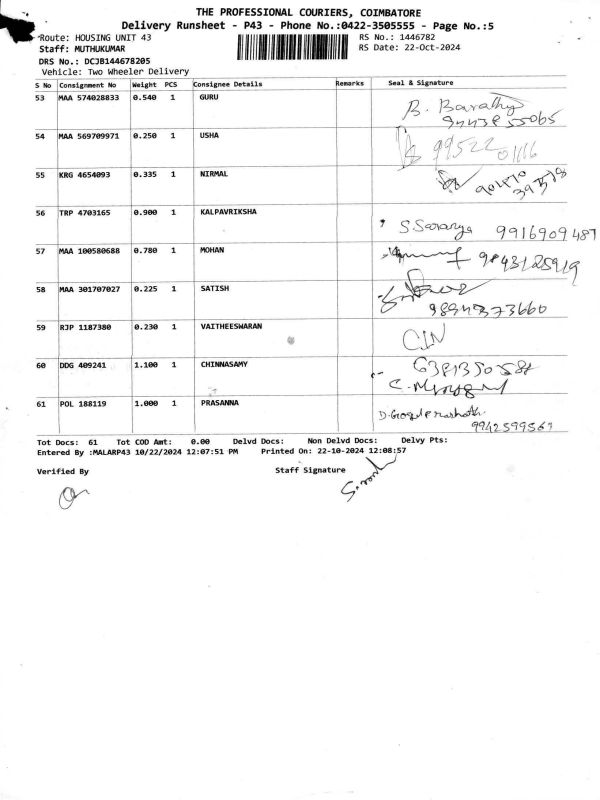 THE PROFESSIONAL COURIERS, COIMBATORE
Delivery Runsheet - P43 - Phone No.:0422-3505555 - Page No.:5
Route: HOUSING UNIT 43 RS No.: 1446782
Staff: MUTHUKUMAR RS Date: 22-Oct-2024
DRS No.: DCJB144678205
Vehicle: Two Wheeler Delivery
S No Consignment No Weight PCS Consignee Details Remarks Seal & Signature
53 MAA 574028833 0.540 1 GURU B. Barathy
54 MAA 569709971 0.250 1 USHA 99522 01116
55 KRG 4654093 0.335 1 NIRMAL
56 TRP 4703165 0.900 1 KALPAVRIKSHA S. Saranya 9916909487
57 MAA 100580688 0.780 1 MOHAN 9843125919
58 MAA 301707027 0.225 1 SATISH
59 RJP 1187380 0.230 1 VAITHEESWARAN
60 DDG 409241 1.100 1 CHINNASAMY
61 POL 188119 1.000 1 PRASANNA
9942599567
Tot Docs: 61 Tot COD Amt: 0.00 Delvd Docs: Non Delvd Docs: Delvy Pts:
Entered By :MALARP43 10/22/2024 12:07:51 PM Printed On: 22-10-2024 12:08:57
Verified By Staff Signature